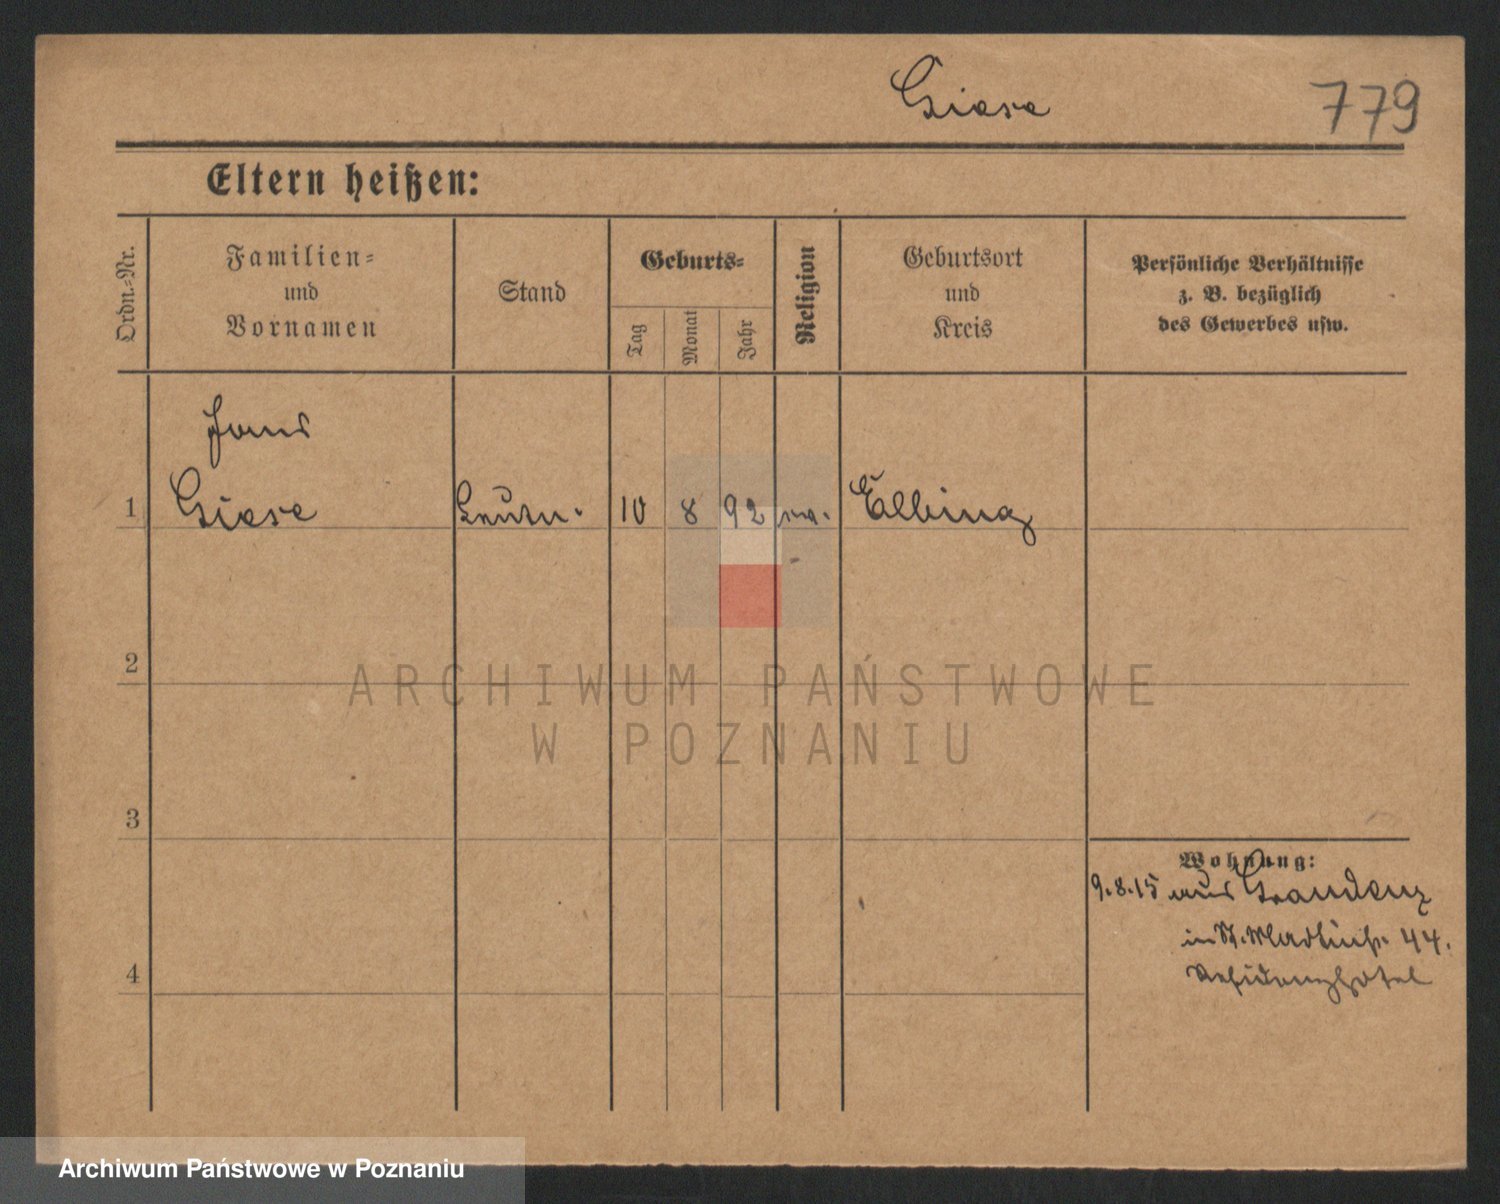 Giese
779
Eltern heißen:
Ordn.-Nr.
Familien-
und
Vornamen
Stand
Geburts-
Tag
Monat
Jahr
Religion
Geburtsort
und
Kreis
Persönliche Verhältnisse
z. B. bezüglich
des Gewerbes usw.
1
Giese
Leutn.
10
8
92
ev.
Elbing
2
ARCHIWUM PAŃSTWOWE
W POZNANIU
3
Wohnung:
9.8.15 aus Graudenz
in St. Martinstr. 44.
Residenzhotel
4
Archiwum Państwowe w Poznaniu